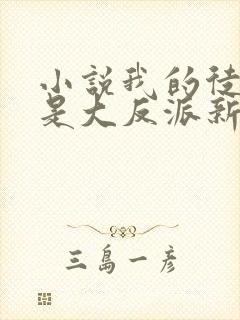 小説我的徒
是大反派新
三島一彥